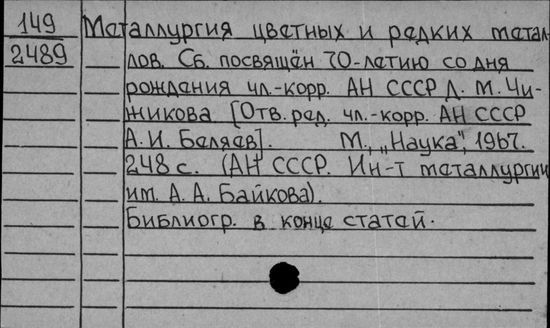 149 Металлургия цветных и редких метал-
2489 лов. Сб. посвящён 70-летию со дня
рождения чл.-корр. АН СССР Д. М. Чи-
жикова [Отв. ред. чл.-корр. АН СССР
А. И. Беляев]. М., „Наука", 1967.
248 с. (АН СССР. Ин-т металлургии
им. А. А. Байкова).
Библиогр. в конце статей.